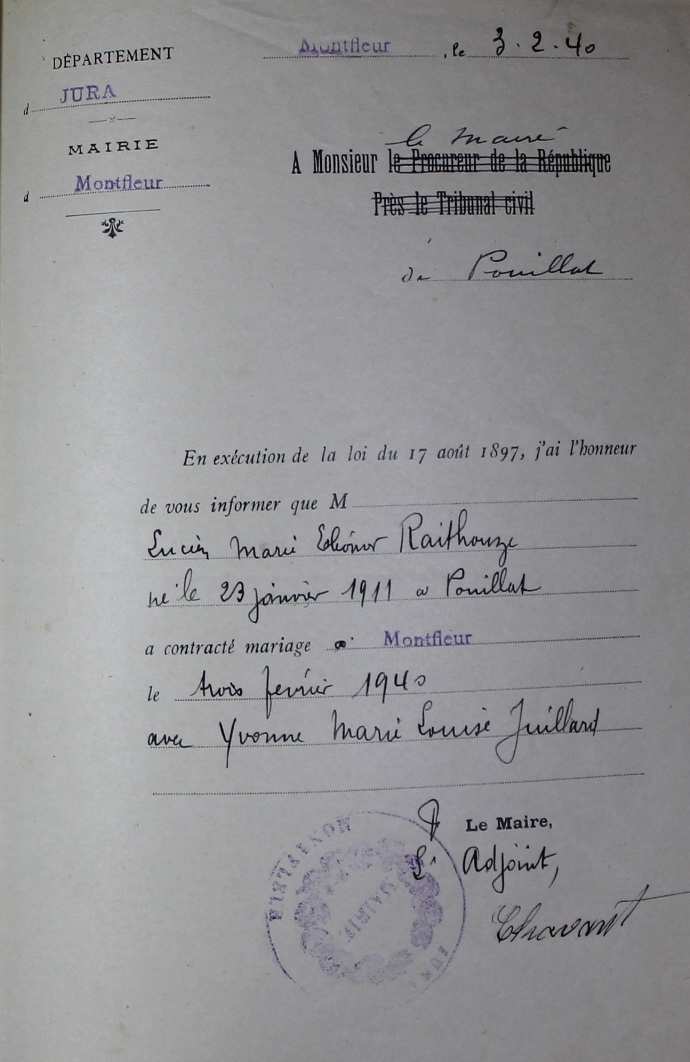 DÉPARTEMENT
d JURA
MAIRIE
d Montfleur
Montfleur, le 3.2.40
le Maire
A Monsieur le Procureur de la République
Près le Tribunal civil
de Pouillat
En exécution de la loi du 17 août 1897, j'ai l'honneur
de vous informer que M
Lucien Marie Eléonor Raithouze
né le 23 janvier 1911 a Pouillat
a contracté mariage a Montfleur
le trois fevrier 1940
avec Yvonne Marie Louise Juillard
P Le Maire,
L'Adjoint,
Chavant
MONTFLEUR
MAIRIE
JURA